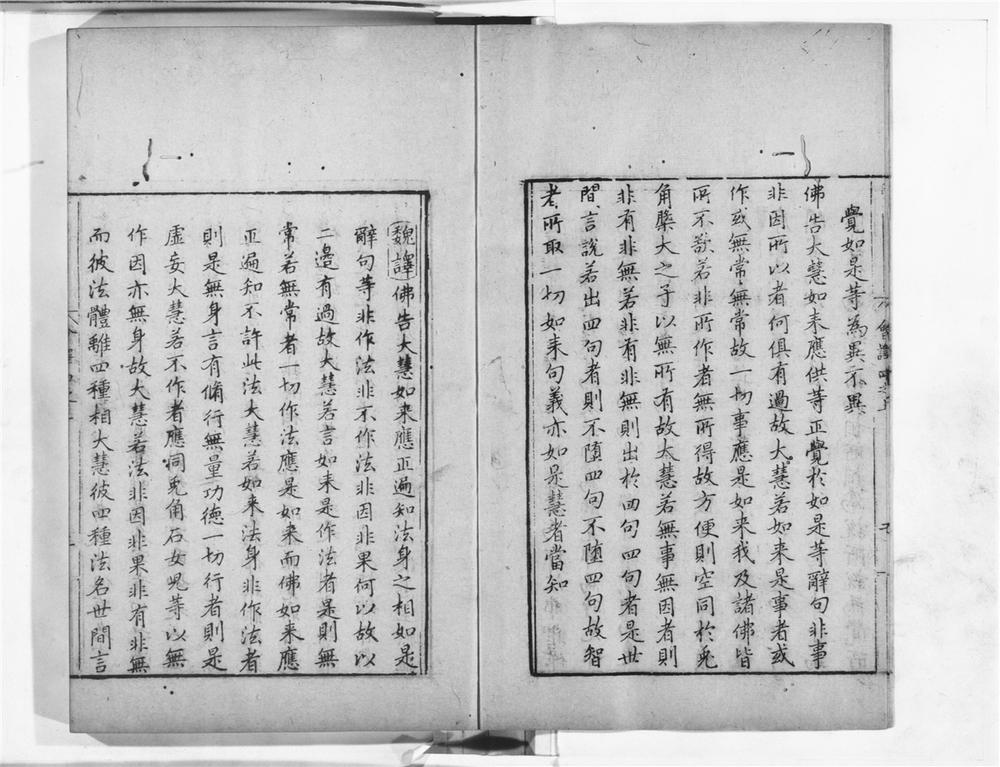 覺如是等為異不異
佛告大慧如来應供等正覺於如是等辭句非事
非因所以者何俱有過故大慧若如来是事者或
作或無常無常故一切事應是如来我及諸佛皆
所不欲若非所作者無所得故方便則空同於兎
角槃大之子以無所有故大慧若無事無因者則
非有非無若非有非無則出於四句四句者是世
間言說若出四句者則不堕四句不堕四句故智
者所取一切如来句義亦如是慧者當知
魏譯佛告大慧如来應正遍知法身之相如是
辭句等非作法非不作法非因非果何以故以
二邉有過故大慧若言如来是作法者是則無
常若無常者一切作法應是如来而佛如来應
正遍知不許此法大慧若如来法身非作法者
則是無身言有脩行無量功徳一切行者則是
虚妄大慧若不作者應同兎角石女兒等以無
作因亦無身故大慧若法非因非果非有非無
而彼法體離四種相大慧彼四種法名世間言